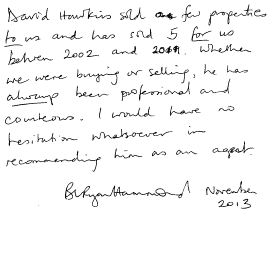 David Hawkins sold a few properties
to us and has sold 5 for us
between 2002 and 2011. Whether
we were buying or selling, he has
always been professional and
courteous. I would have no
hesitation whatsoever in
recommending him as an agent.
November
2013